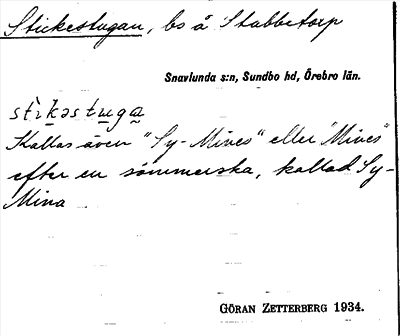 Stickestugan, bs å Stabbetorp
Snavlunda s:n, Sundbo hd, Örebro län.
stìkəstu̲ga̲
Kallas även "Sy-Mines" eller "Mines"
efter en sömmerska, kallad Sy-
Mina
GÖRAN ZETTERBERG 1934.